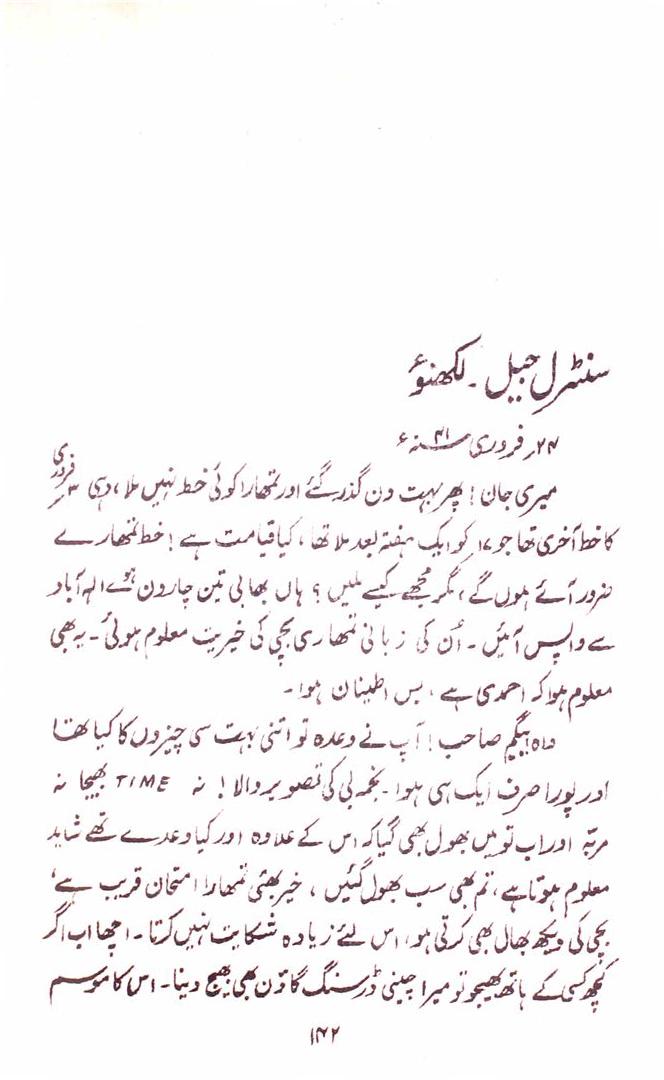 سنٹرل جیل ۔ لکھنؤ
۲۴؍ فروری ۴۱ء
میری جان! پھر بہت دن گذر گئے اور تمھارا کوئی خط نہیں ملا، وہی ۳؍ فروری
کا خط آخری تھا جو ۱۷؍ کو ایک ہفتہ بعد ملا تھا، کیا قیامت ہے! خط تمھارے
ضرور آئے ہوں گے، مگر مجھے کیسے ملیں؟ ہاں بھابی تین چار دن ہوئے الہ آباد
سے واپس آئیں ۔ اُن کی زبانی تمھاری بچی کی خیریت معلوم ہوئی ۔ یہ بھی
معلوم ہوا کہ احمدی ہے، بس اطمینان ہوا ۔
واہ بیگم صاحب! آپ نے وعدہ تو اتنی بہت سی چیزوں کا کیا تھا
اور پورا صرف ایک ہی ہوا ۔ نجمہ بی کی تصویر والا! نہ TIME بھیجا نہ
مربّہ اور اب تو میں بھول بھی گیا کہ اس کے علاوہ اور کیا وعدے تھے شاید
معلوم ہوتا ہے، تم بھی سب بھول گئیں، خیر بھئی تمھارا امتحان قریب ہے،
بچی کی دیکھ بھال بھی کرتی ہو، اس لئے زیادہ شکایت نہیں کرتا ۔ اچھا اب اگر
کچھ کسی کے ہاتھ بھیجو تو میرا چینی ڈرسنگ گاؤن بھی بھیج دینا ۔ اس کا موسم
۱۴۲